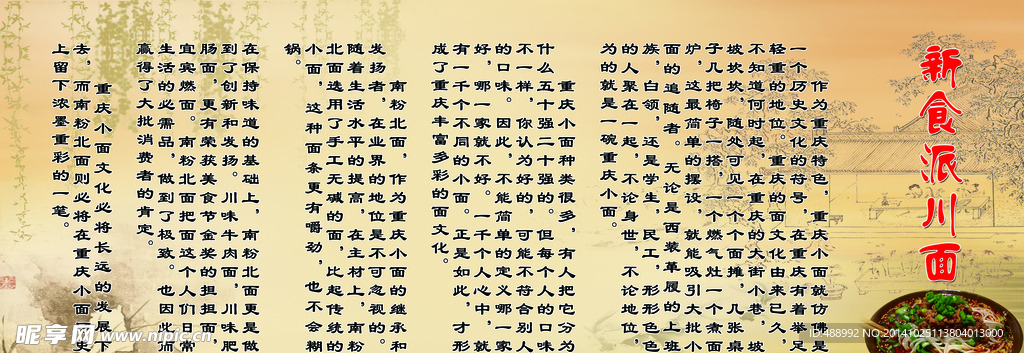 新食派川面
作为重庆特色，重庆小面就仿佛是
一个历史文化的符号，在重庆有着举足
轻重的地位。重庆的面文化由来已久，
不知道何时起，在重庆的大街小巷，坡
坡坎坎，随处可见一个个面摊，几张桌
子几把椅子一搭，一个燃气灶一个煮面
炉，这最简单的摆设，就能吸引大批小
面的追随者。无论是西装革履的上班
族，白领，还是学生，民工，形形色色
的人聚在一起，不论身世，不论地位，
为的就是一碗重庆小面。
重庆小面种类很多，有人把它分为
什么五十强二十强的。但每个人的口味
不一样，你认为好的，可能不符合别人
的口味。因此，不能简单的定义哪一家
好，哪一家就不好。一千个人心中，就
有一千个不同的小面。正是如此，才形
成了重庆丰富多彩的面文化。
南粉北面，作为重庆小面的继承和
发扬者，在业界的地位是不可忽视的。
随着生活水平的提高，在主材上，南粉
北面选用了手工无碱的面，比起传统的
小面，这种面条更有嚼劲，也不会糊
锅。
在保持味道的基础上，南粉北面更是做
到了创新和发扬。川味牛肉面，川味肥
肠面，更有荣获美食节金奖的担担面，
宜宾燃面。南粉北面把面这个人们日常
生活的必需品，做到了极致。也因此而
赢得了大批消费者的肯定。
重庆小面文化必将长远的发展下
去，而南粉北面则必将在重庆小面史
上留下浓墨重彩的一笔。
昵享网 www.nipic.cn
ID:488992 NO:20141029113804013000